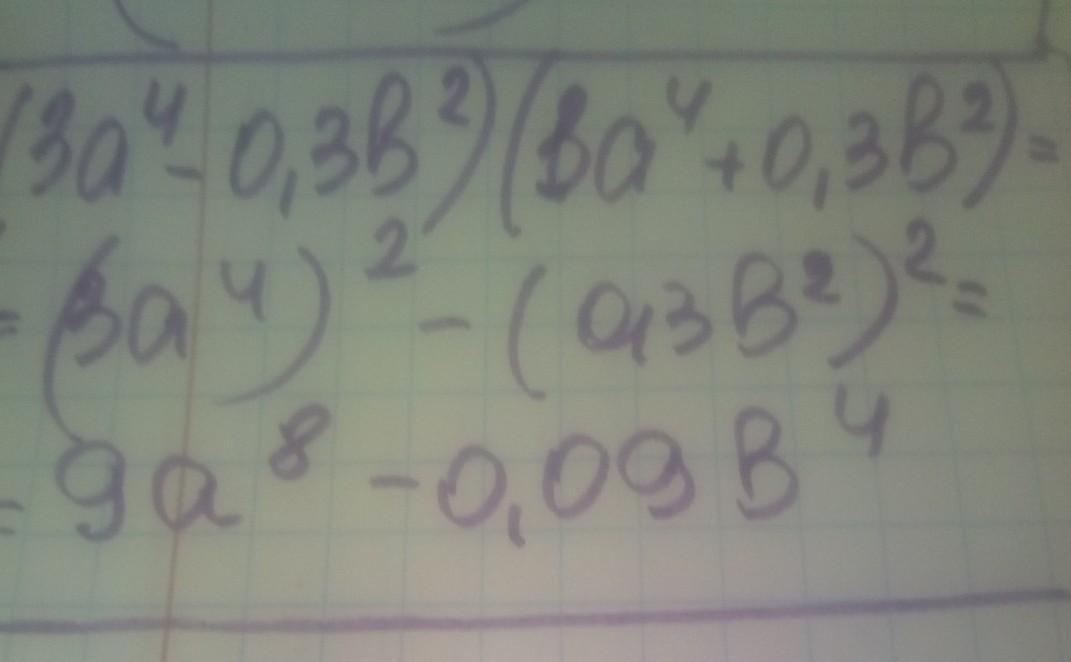 (3a⁴-0,3в²)(3a⁴+0,3в²)=
=(3a⁴)²-(0,3в²)²=
=9a⁸-0,09в⁴